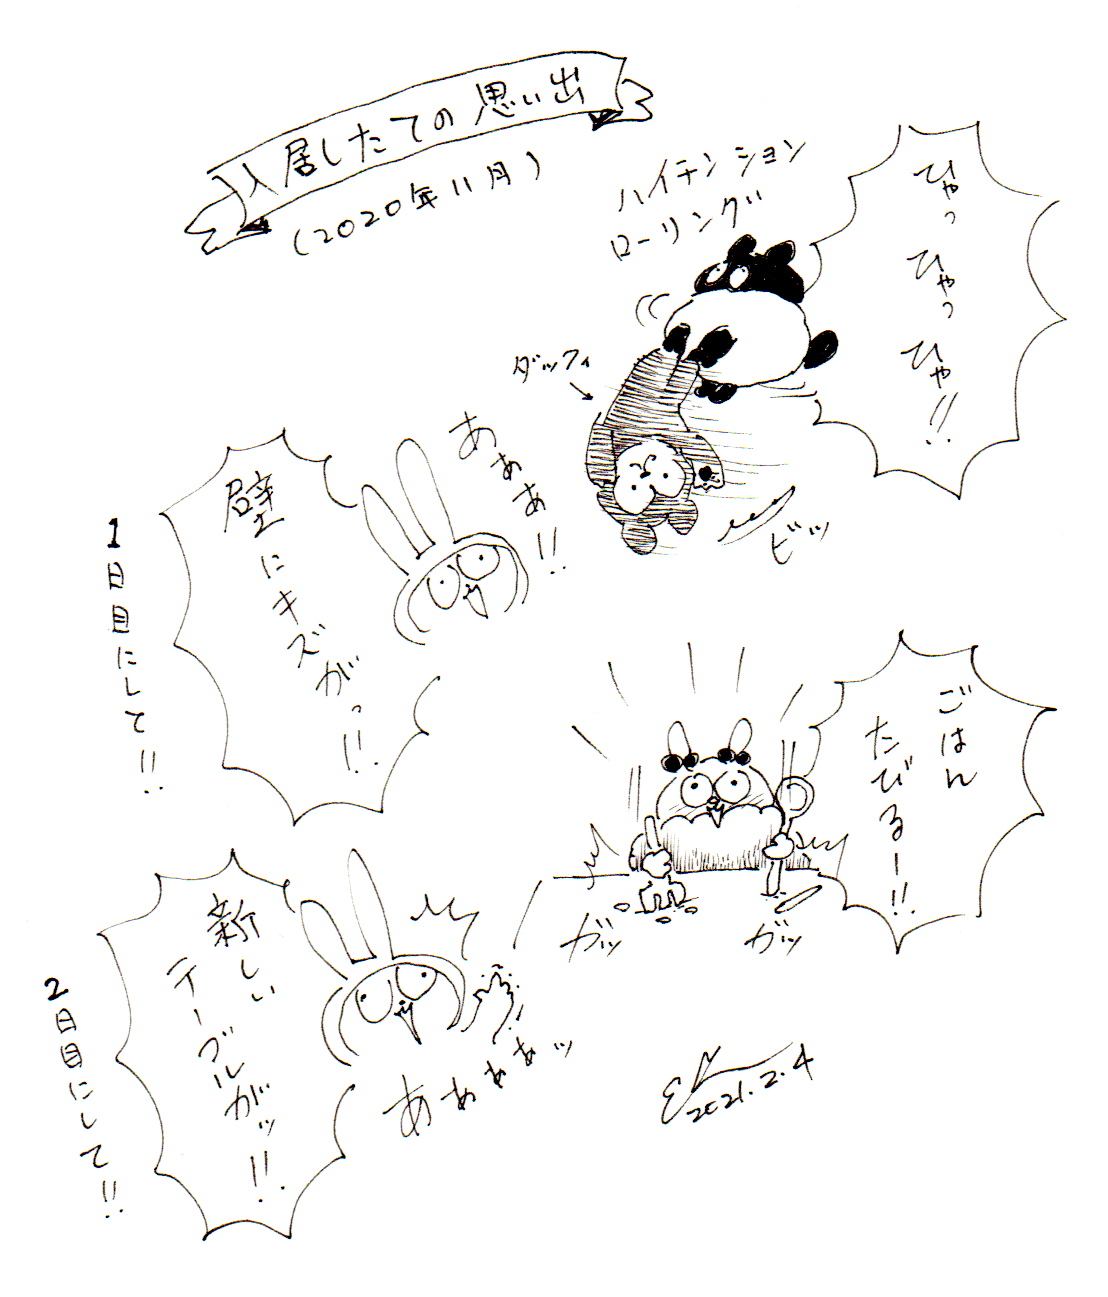 入居したての思い出
(2020年11月)
ハイテンション
ローリング
ひゃっ ひゃっ ひゃ!!
ダッフィ
ビッ
あぁぁ!!
壁にキズがっ!!
1日目にして!!
ごはん
たびるー!!
ガッ
ガッ
新しい
テーブルがッ!!
あぁぁぁッ
2日目にして!!
2021.2.4